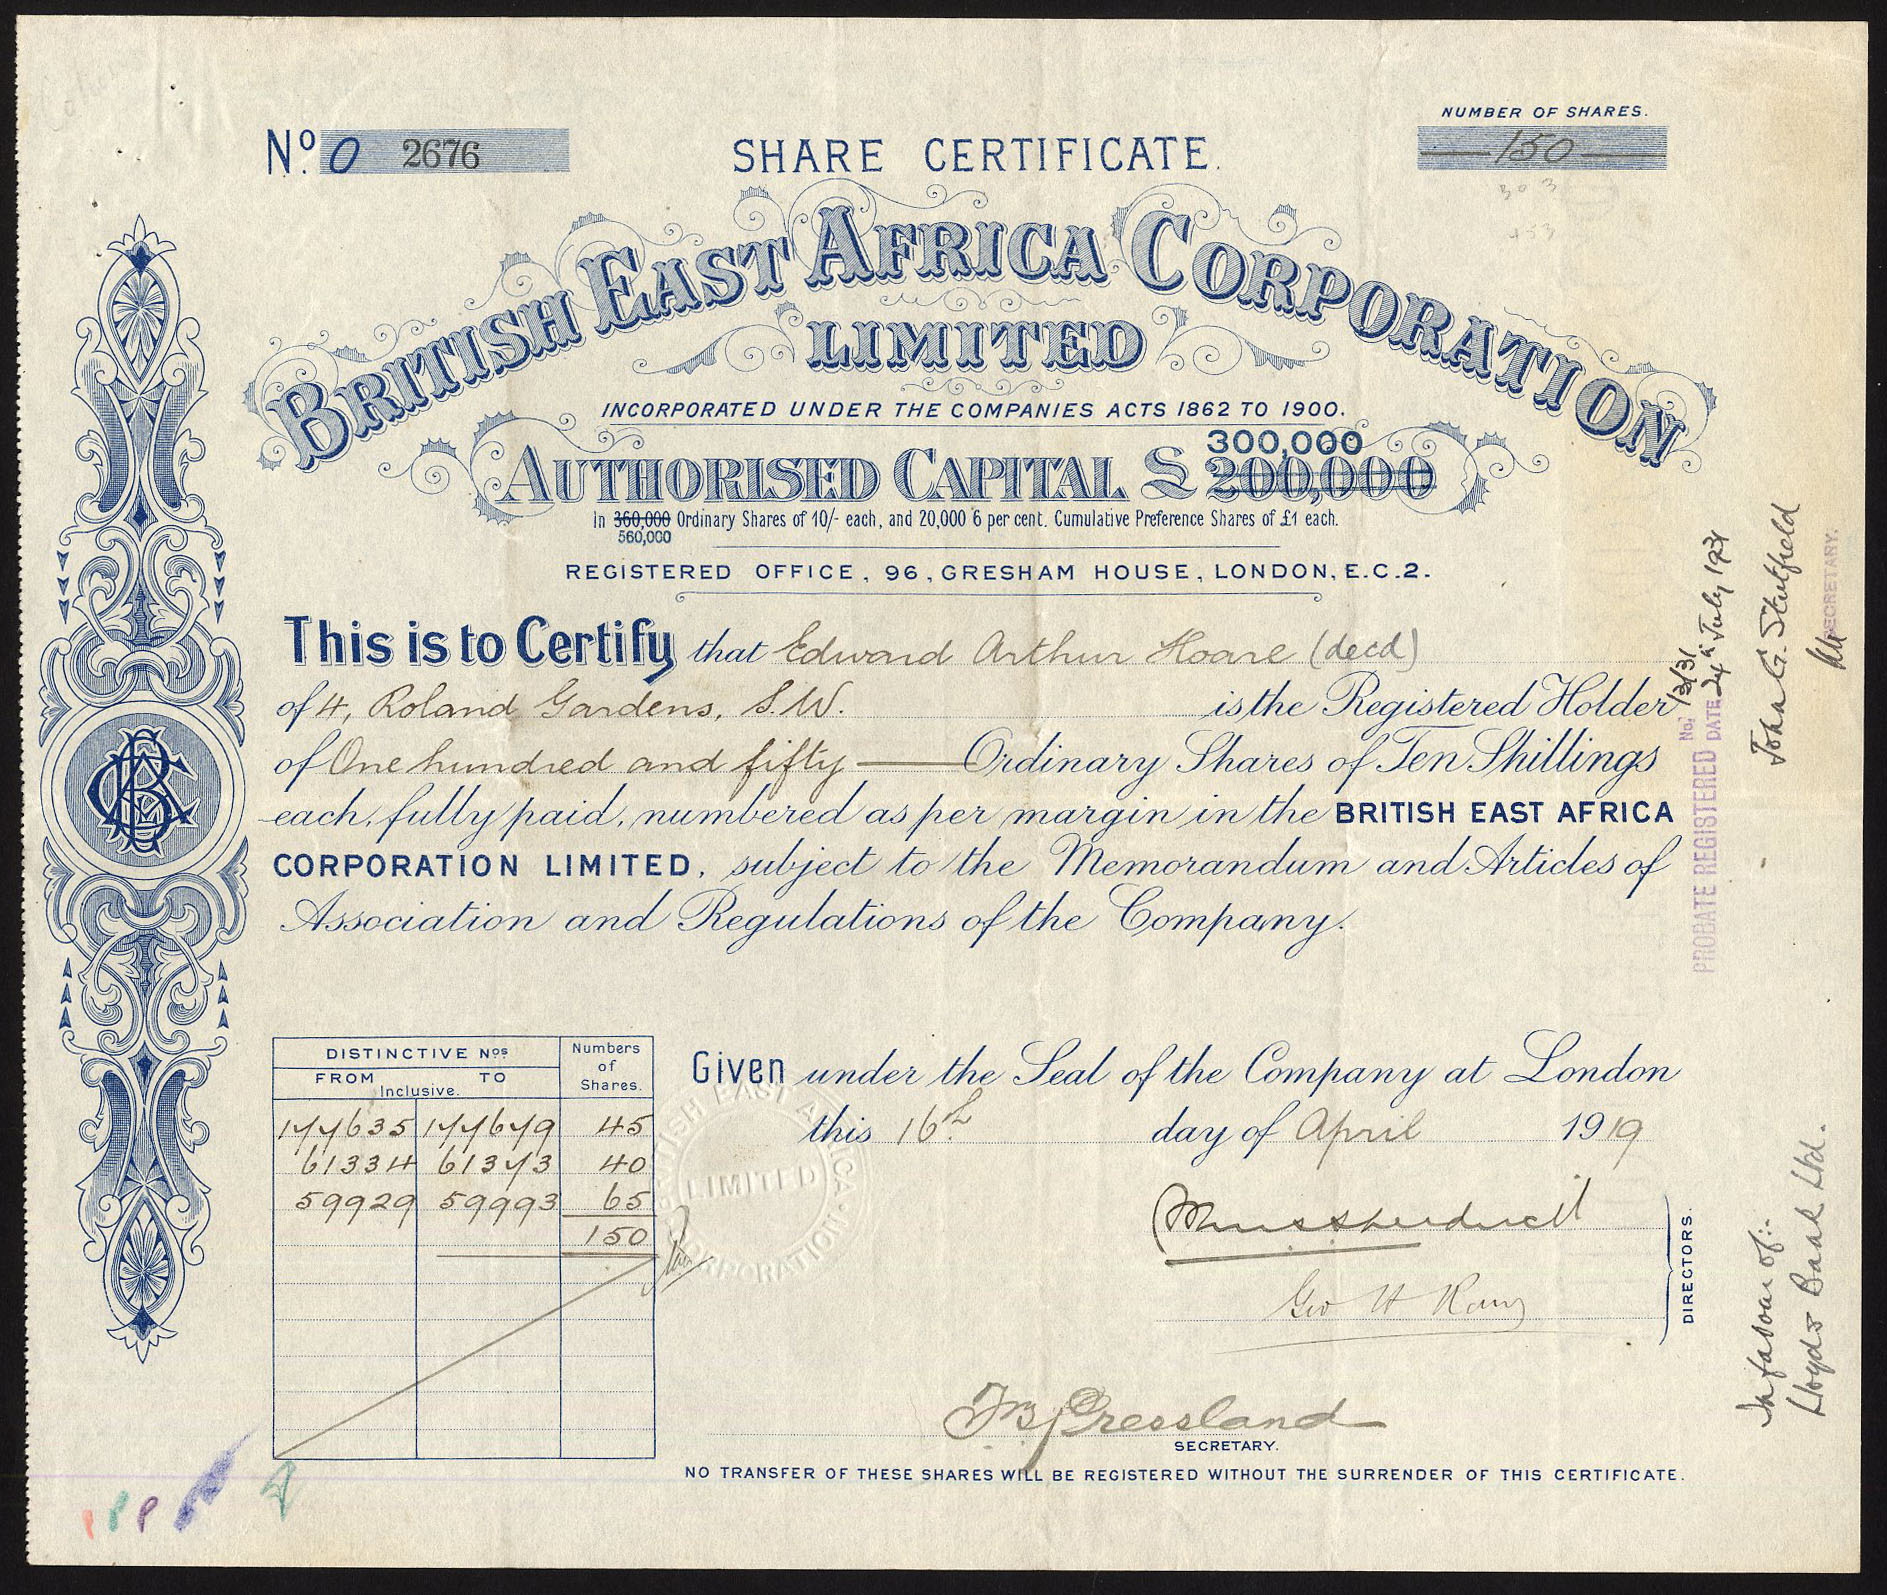 NUMBER OF SHARES.
No. O 2676
SHARE CERTIFICATE.
150
303
453
BRITISH EAST AFRICA CORPORATION
LIMITED
INCORPORATED UNDER THE COMPANIES ACTS 1862 TO 1900.
300,000
AUTHORISED CAPITAL £ 200,000
In 360,000 Ordinary Shares of 10/- each, and 20,000 6 per cent. Cumulative Preference Shares of £1 each.
560,000
REGISTERED OFFICE, 96, GRESHAM HOUSE, LONDON, E.C.2.
This is to Certify that Edward Arthur Hoare (decd)
of 4, Roland Gardens, S.W. is the Registered Holder
of One hundred and fifty Ordinary Shares of Ten Shillings
each, fully paid, numbered as per margin in the BRITISH EAST AFRICA
CORPORATION LIMITED, subject to the Memorandum and Articles of
Association and Regulations of the Company.
DISTINCTIVE Nos
Numbers of Shares.
FROM TO
Inclusive.
177635 177679 45
61334 61373 40
59929 59993 65
150
Given under the Seal of the Company at London
this 16th day of April 1919
BRITISH EAST AFRICA CORPORATION
LIMITED
Geo H
DIRECTORS.
Pressland
SECRETARY.
NO TRANSFER OF THESE SHARES WILL BE REGISTERED WITHOUT THE SURRENDER OF THIS CERTIFICATE.
PROBATE REGISTERED No. 13/31
DATE 24th July 1931
John G. Stutfield
SECRETARY.
In favour of:-
Lloyds Bank Ltd.